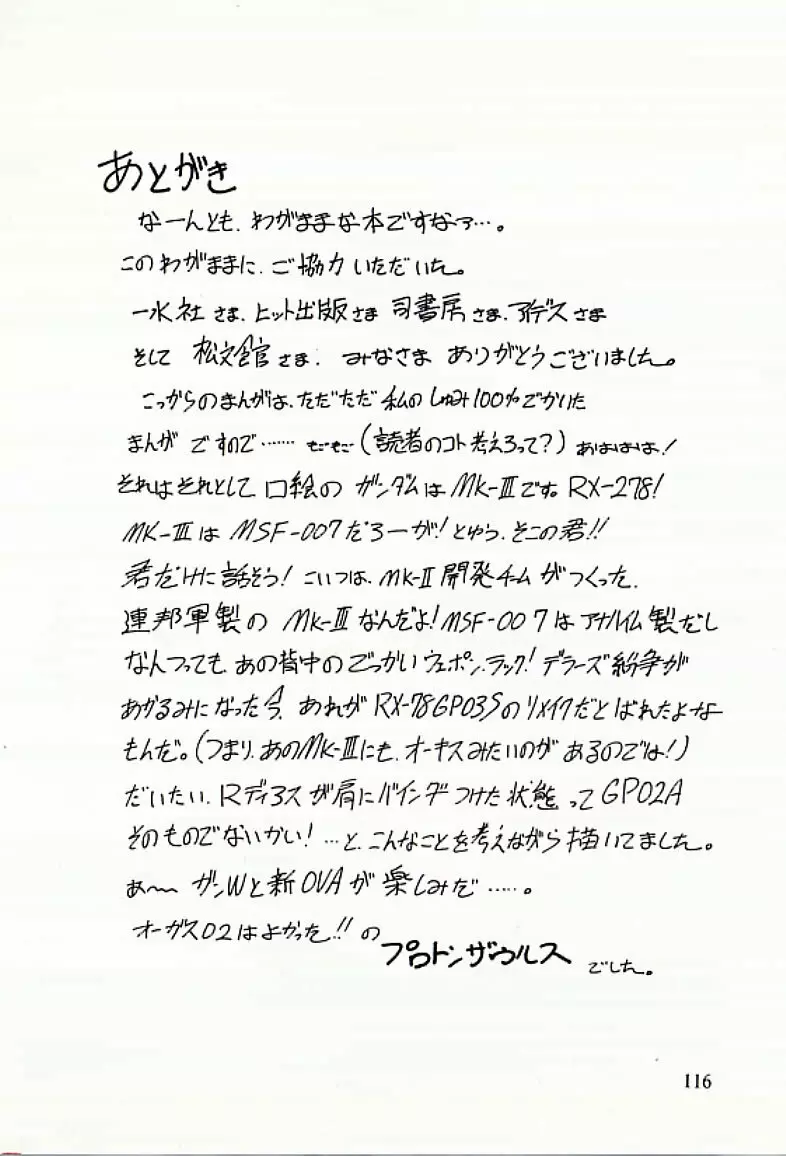 あとがき
なーんとも、わがままな本ですなァ…。
このわがままに、ご協力いただいた。
一水社さま、ヒット出版さま 司書房さま、アイデスさま
そして 松文館さま、みなさま ありがとうございました。
こっからのまんがは、ただただ 私の しゅみ100%でかいた
まんが ですので…… もごもご (読者のコト考えろって?) あははは!
それはそれとして 口絵の ガンダムは MK-Ⅲです。RX-278!
MK-Ⅲは MSF-007だろーが!とゆう、そこの君!!
君だけに話そう! こいつは、MK-Ⅱ開発チームがつくった、
連邦軍製の MK-Ⅲなんだよ! MSF-007は アナハイム製だし
なんつっても、あの背中のごっかい ウェポン、ラック! デラーズ紛争が
あかるみになった今、あれが RX-78GP03Sの リメイクだとばれたよーな
もんだ。(つまり、あのMK-Ⅲにも、オーキスみたいのが あるのでは!)
だいたい、Rディアスが肩にバインダつけた状態 って GP02A
そのものでないかい! …と、こんなことを考えながら描いてました。
ぁ〜〜 ガンWと新OVAが 楽しみだ ……。
オーガス02はよかった!! の
プロトンザウルス でした。
116